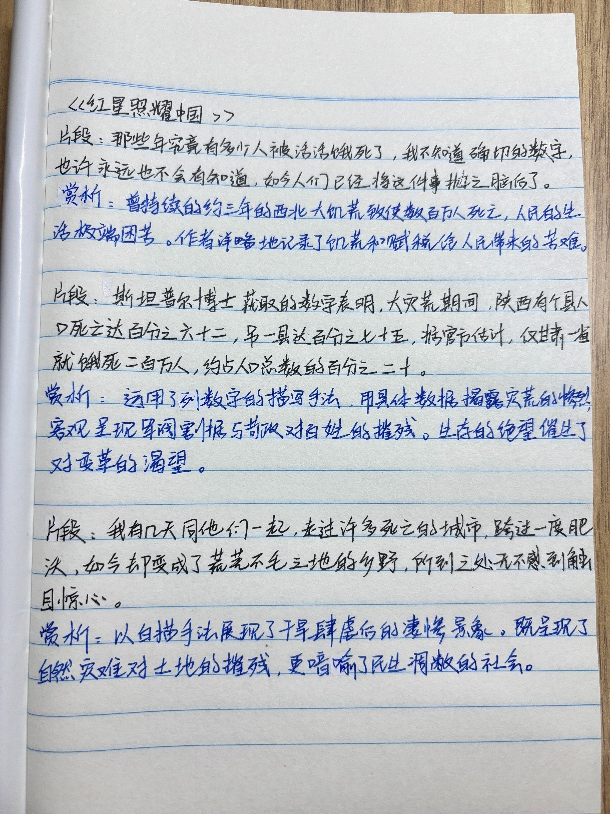 《红星照耀中国》
片段：那些年究竟有多少人被活活饿死了，我不知道确切的数字，
也许永远也不会有知道，如今人们已经将这件事抛之脑后了。
赏析：曾持续的约三年的西北大饥荒致使数百万人死亡，人民的生
活极端困苦。作者详略地记录了饥荒和赋税给人民带来的苦难。
片段：斯坦普尔博士获取的数字表明，大灾荒期间，陕西有个县人
口死亡达百分之六十二，另一县达百分之七十五，据官方估计，仅甘肃一省
就饿死二百万人，约占人口总数的百分之二十。
赏析：运用了列数字的描写手法，用具体数据揭露灾荒的惨烈
客观呈现军阀割据与苛政对百姓的摧残。生存的绝望催生了
对变革的渴望。
片段：我有几天同他们一起，走过许多死亡的城市，跨过一度肥
沃，如今却变成了荒芜不毛之地的乡野，所到之处无不感到触
目惊心。
赏析：以白描手法展现了干旱肆虐后的凄惨景象。既呈现了
自然灾难对土地的摧残，更暗喻了民生凋敝的社会。